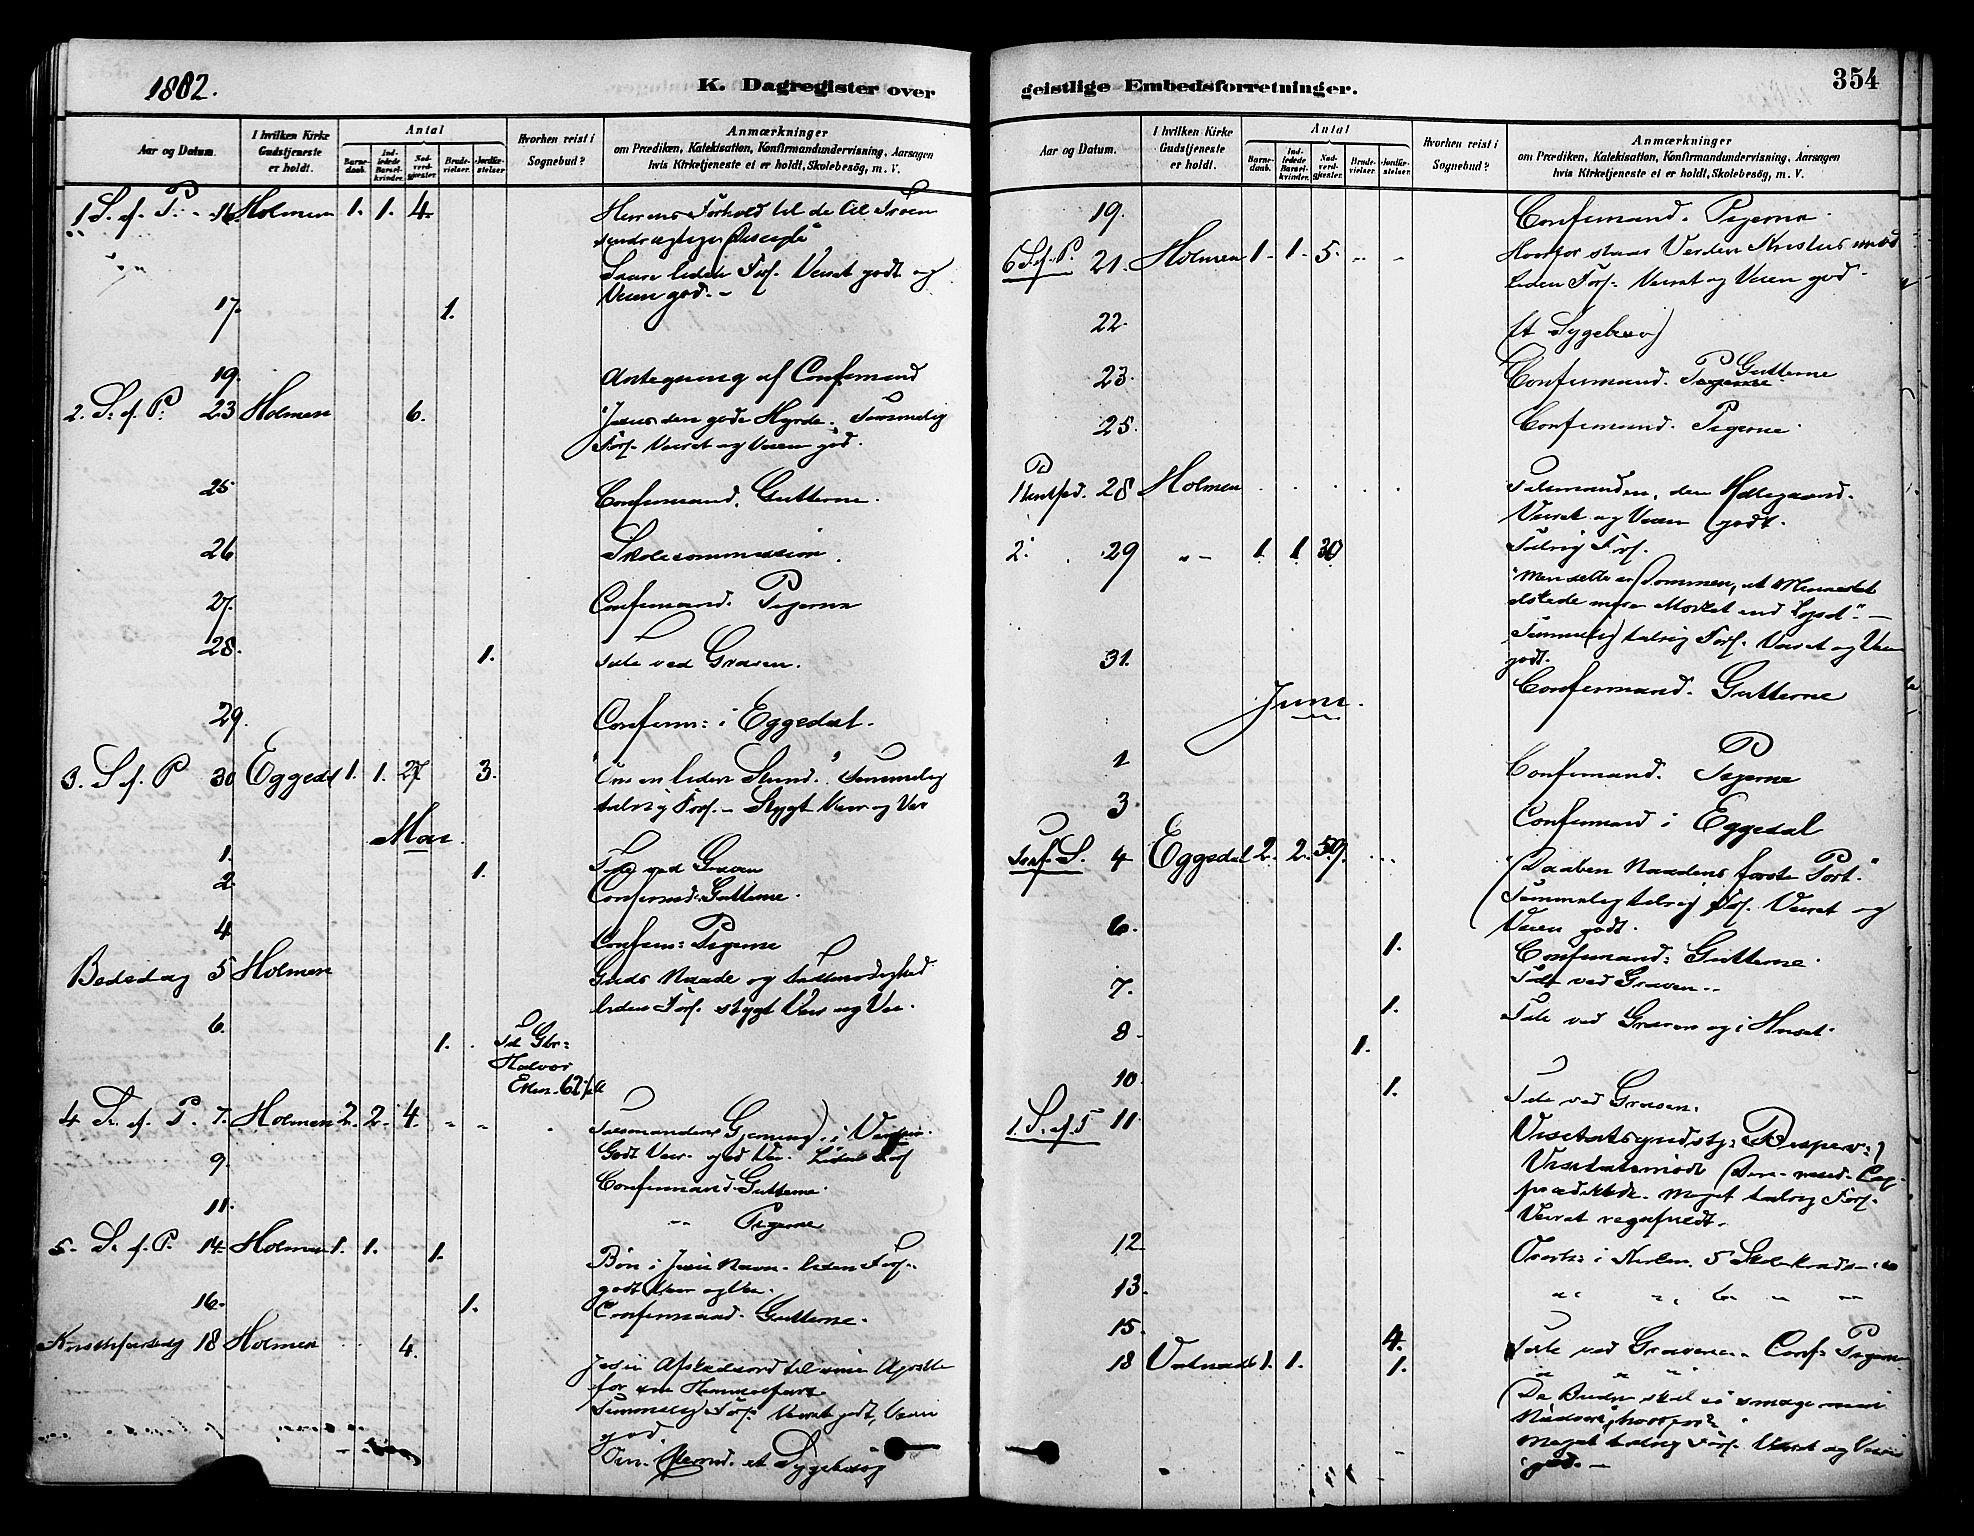 1882.
K. Dagregister over
Aar og Datum.
I hvilken Kirke Gudstjeneste er holdt.
Antal
Barnedaab.
Indledede Barselkvinder.
Nadverdgjester.
Brudevielser.
Jordfæstelser.
Hvorhen reist i Sognebud?
Anmærkninger
om Prædiken, Katekisation, Konfirmandundervisning, Aarsagen
hvis Kirketjeneste ei er holdt, Skolebesög, m. V.
1 S. ef. P. 16 Holmen 1. 1. 4. Herrens Forhold til de til Troen
Disciple
liden Forf. Veiret godt og
Veien god. -
17. 1.
19. Antegning af Confirmand
2. S. ef. P. 23 Holmen 6. "Jesus den gode Hyrde. Temmelig
Forf. Veiret og Veien god.
25 Confirmand. Gutterne.
26 Skolecommission.
27. Confirmand. Pigerne
28. 1. Tale ved Graven.
29. Confirm: i Eggedal.
3. S. ef. P 30 Eggedal 1. 1. 27 3. "Om en liden Stund." Temmelig
talrig Forf. - Stygt Veir og Vei
Mai.
1. 1. Tale ved Graven
2 Confirmd. Gutterne.
4 Confirm: Pigerne
Bededag 5 Holmen Guds Naade og
liden Forf. stygt Veir og Vei
6. 1.
Halvor
4 S. ef. P. 7. Holmen 2. 2. 4. Talsmandens Gjerning i Verden.
Godt Veir. god Vei. Liden Forf
9. Confirmand. Gutterne.
11. -"- Pigerne
5. S. ef. P. 14. Holmen 1. 1. 1. Bøn i Jesu Navn - liden Forf.
godt Veir og Vei.
16. 1. Confirmand. Gutterne.
18 Holmen 4. Jesu Afskedsord til sine Apostle
for sin Himmelfart
Temmelig Forf. Veiret godt, Veien
god.
et Sygebesøg
geistlige Embedsforretninger.
354
Aar og Datum.
I hvilken Kirke Gudstjeneste er holdt.
Antal
Barnedaab.
Indledede Barselkvinder.
Nadverdgjester.
Brudevielser.
Jordfæstelser.
Hvorhen reist i Sognebud?
Anmærkninger
om Prædiken, Katekisation, Konfirmandundervisning, Aarsagen
hvis Kirketjeneste ei er holdt, Skolebesög, m. V.
19. Confirmand. Pigerne.
6 S. ef. P. 21. Holmen 1. 1. 5. Hvorfor staar Verden Kristus imod
Liden Forf. Veiret og Veien god.
22. Et Sygebesøg
23. Confirmand. Gutterne
25. Confirmand. Pigerne.
1 28 Holmen Talsmanden, den Hellegaand.
Veiret og Veien godt.
2. 29 -"- 1. 1 30 Talrig Forf.
"Men dette er Dommen, at Mennesket
elskede mere Mørket end Lyset". -
Temmelig talrig Forf. Veiret og Veien
godt.
31. Confirmand. Gutterne
Juni.
1 Confirmand. Pigerne
3. Confirmand i Eggedal
Tref. S. 4 Eggedal 2. 2. 59. "Daaben Naadens første Port."
Temmelig talrig Forf. Veiret og
Veien godt.
6. 1. Confirmand: Gutterne.
Tale ved Graven. -
7. 1. Tale ved Graven og i Huset.
8. 1.
10 1. Tale ved Graven.
1. S. ef. T 11.
Meget talrig Forf.
Veiret regnfuldt. -
12
13.
15. 4. Tale ved Gravene. - Conf. Pigerne
18 1. 1. 1.
Nadvere, hvorfor?
Meget talrig Forf. Veiret og Veien
god. -